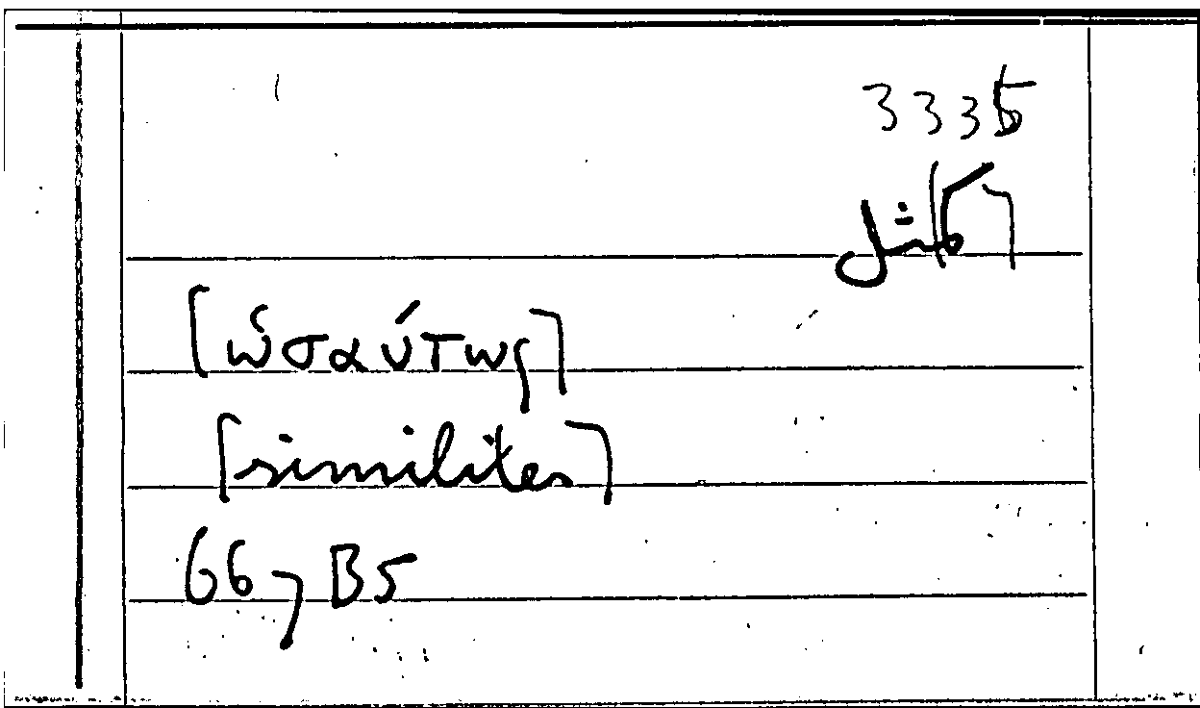 3335
[ὡσαύτως]
[similiter]
667 B5